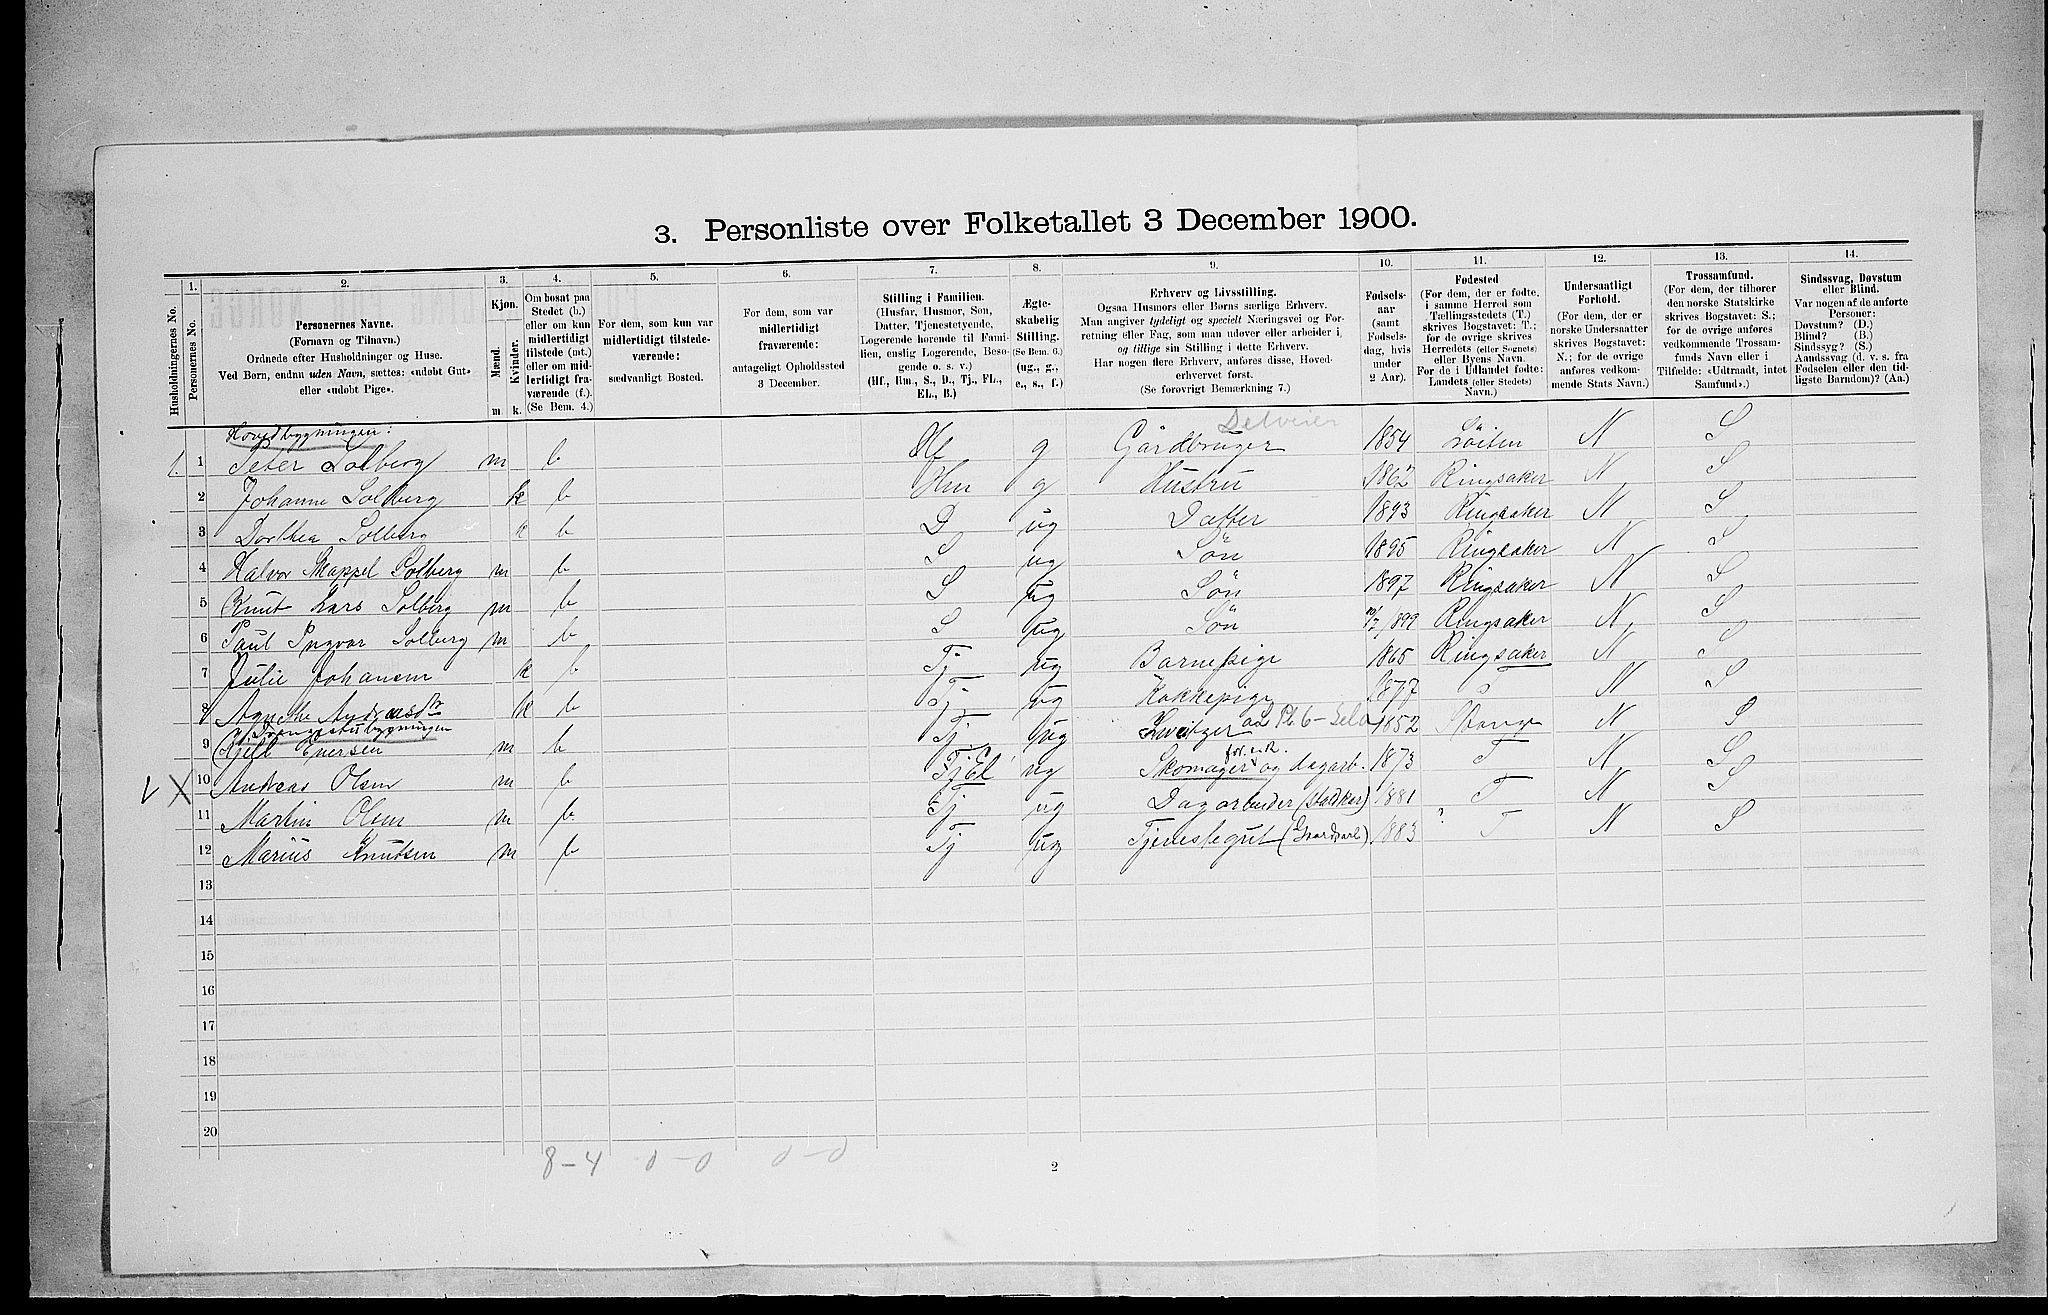 3. Personliste over Folketallet 3 December 1900.
1. 2. 3. 4. 5. 6. 7. 8. 9. 10. 11. 12. 13. 14.
Husholdningernes No.
Personernes No.
Personernes Navne.
(Fornavn og Tilnavn.)
Ordnede efter Husholdninger og Huse.
Ved Børn, endnu uden Navn, sættes: «udøbt Gut»
eller «udøbt Pige».
Kjøn.
Mænd.
Kvinder.
m. k.
Om bosat paa
Stedet (b.)
eller om kun
midlertidigt
tilstede (mt.)
eller om mid-
lertidigt fra-
værende (f.).
(Se Bem. 4.)
For dem, som kun var
midlertidigt tilstede-
værende:
sædvanligt Bosted.
For dem, som var
midlertidigt
fraværende:
antageligt Opholdssted
3 December.
Stilling i Familien.
(Husfar, Husmor, Søn,
Datter, Tjenestetyende,
Logerende hørende til Fami-
lien, enslig Logerende, Besø-
gende o. s. v.)
(Hf., Hm., S., D., Tj., FL.,
EL., B.)
Ægte-
skabelig
Stilling.
(Se Bem. 6.)
(ug., g.,
e., s., f.)
Erhverv og Livsstilling.
Ogsaa Husmors eller Børns særlige Erhverv.
Man angiver tydeligt og specielt Næringsvei og For-
retning eller Fag, som man udøver eller arbeider i,
og tillige sin Stilling i dette Erhverv.
Har nogen flere Erhverv, anføres disse, Hoved-
erhvervet først.
(Se forøvrigt Bemærkning 7.)
Fødsels-
aar
(samt
Fødsels-
dag, hvis
under
2 Aar).
Fødested
(For dem, der er fødte,
i samme Herred som
Tællingsstedets (T.)
skrives Bogstavet: T.;
for de øvrige skrives
Herredets (eller Sognets)
eller Byens Navn.
For de i Udlandet fødte:
Landets (eller Stedets)
Navn.)
Undersaatligt
Forhold.
(For dem, der er
norske Undersaatter
skrives Bogstavet:
N.; for de øvrige
anføres vedkom-
mende Stats Navn.)
Trossamfund.
(For dem, der tilhører
den norske Statskirke
skrives Bogstavet: S.;
for de øvrige anføres
vedkommende Trossam-
funds Navn eller i
Tilfælde: «Udtraadt, intet
Samfund».)
Sindssvag, Døvstum
eller Blind.
Var nogen af de anførte
Personer:
Døvstum? (D.)
Blind? (B.)
Sindssyg? (S.)
Aandssvag (d. v. s. fra
Fødselen eller den tid-
ligste Barndom)? (Aa.)
Hovedbygningen: Selveier
1. 1 Peter Solberg m b Hf g Gårdbruger 1854 Löiten N S
2 Johanne Solberg k b Hm g Hustru 1862 Ringsaker N S
3 Dorthea Solberg k b D ug Datter 1893 Ringsaker N S
4 Halvor Skappel Solberg m b S ug Sön 1895 Ringsaker N S
5 Knut Lars Solberg m b S ug Sön 1897 Ringsaker N S
6 Paul Yngvar Solberg m b S ug Sön /7 1899 Ringsaker N S
7 Julie Johansen k b Tj ug Barnepige 1865 Ringsaker N S
8 Agnethe Andreasdr k b Tj ug Kokkepige 1877 T N S
Drengestubygningen
9 Kjell Eversen m b Tj ug 1852 Stange N S
10 Andreas Olsen m b Tj El ug Skomager for e. R. og dagarb. 1873 T N S
11 Martin Olsen m b Tj ug Dagarbeider (Staldkar) 1881 T N S
12 Marius Knutsen m b Tj ug Tjenestegut (Gaardsarb) 1883 T N S
13
14
15
16
17
18
19
20
8-4 0-0 0-0
2